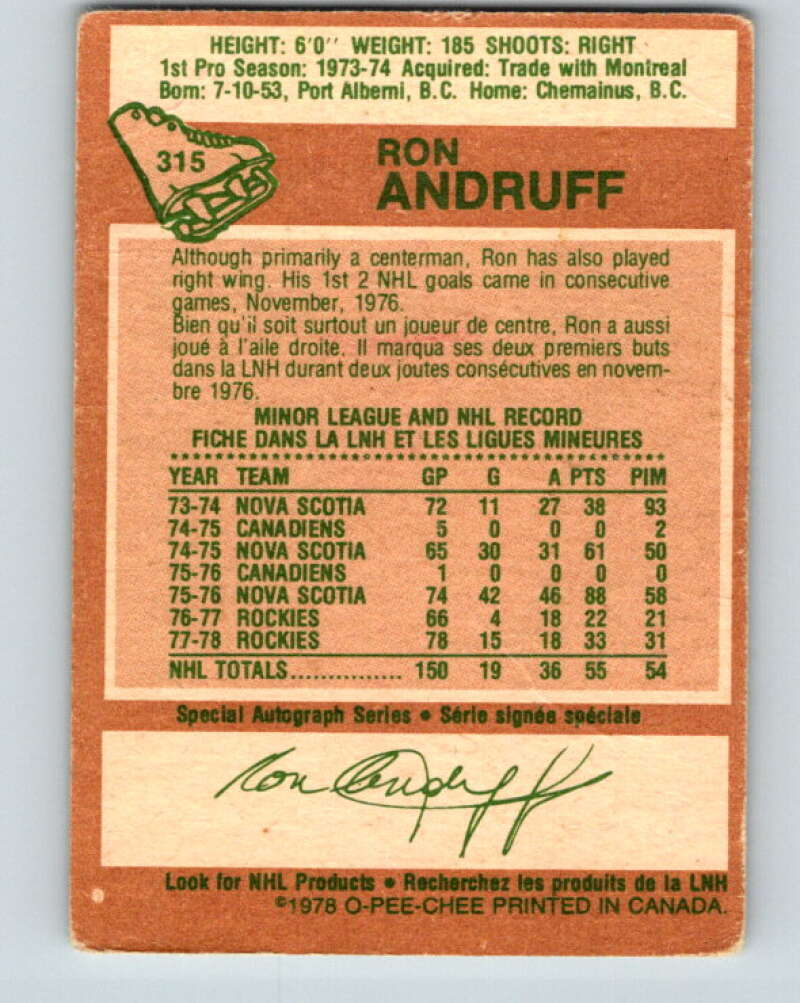 HEIGHT: 6'0'' WEIGHT: 185 SHOOTS: RIGHT
1st Pro Season: 1973-74 Acquired: Trade with Montreal
Born: 7-10-53, Port Alberni, B.C. Home: Chemainus, B.C.
315
RON
ANDRUFF
Although primarily a centerman, Ron has also played
right wing. His 1st 2 NHL goals came in consecutive
games, November, 1976.
Bien qu'il soit surtout un joueur de centre, Ron a aussi
joué à l'aile droite. Il marqua ses deux premiers buts
dans la LNH durant deux joutes consécutives en novem-
bre 1976.
MINOR LEAGUE AND NHL RECORD
FICHE DANS LA LNH ET LES LIGUES MINEURES
YEAR TEAM GP G A PTS PIM
73-74 NOVA SCOTIA 72 11 27 38 93
74-75 CANADIENS 5 0 0 0 2
74-75 NOVA SCOTIA 65 30 31 61 50
75-76 CANADIENS 1 0 0 0 0
75-76 NOVA SCOTIA 74 42 46 88 58
76-77 ROCKIES 66 4 18 22 21
77-78 ROCKIES 78 15 18 33 31
NHL TOTALS............... 150 19 36 55 54
Special Autograph Series • Série signée spéciale
Ron Andruff
Look for NHL Products • Recherchez les produits de la LNH
©1978 O-PEE-CHEE PRINTED IN CANADA.